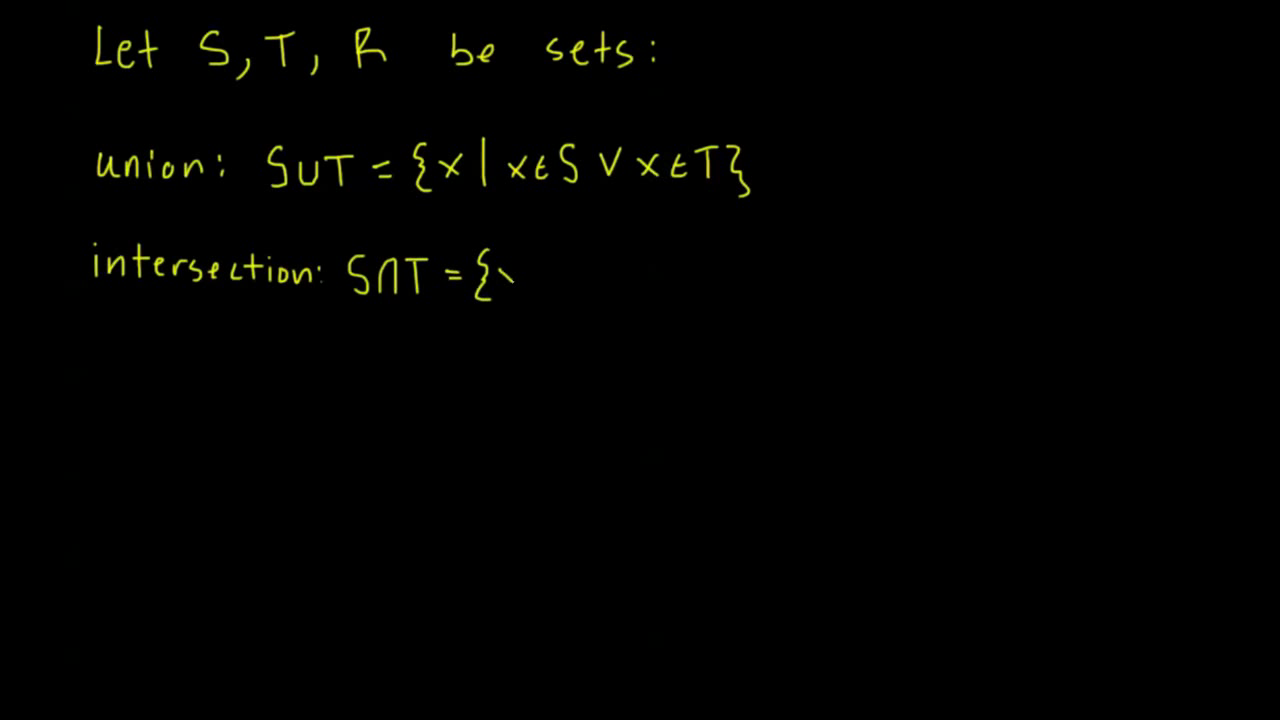 Let S, T, R be sets:
union: S∪T = {x | x∈S ∨ x∈T}
intersection: S∩T = {